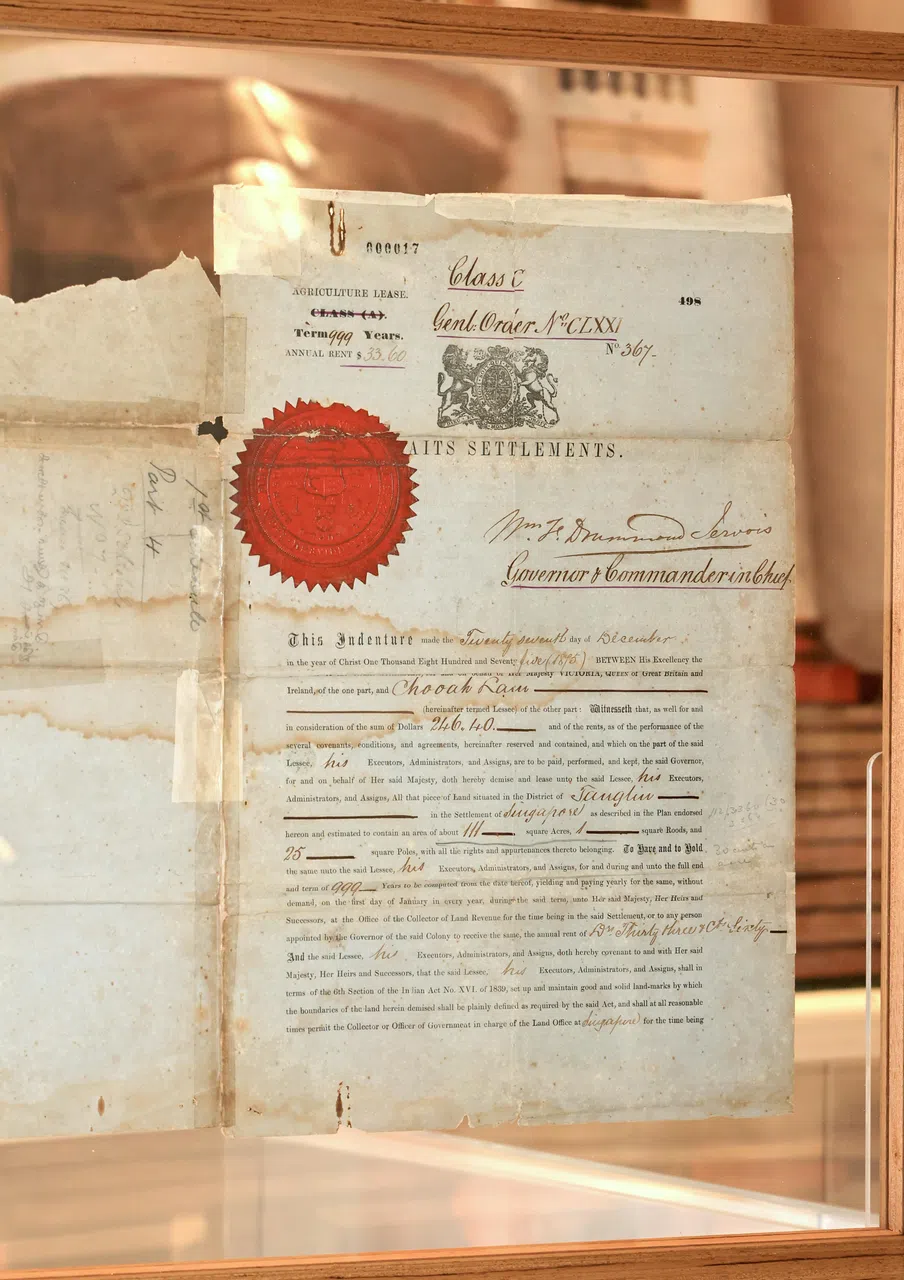 000017
Class C
AGRICULTURE LEASE.
CLASS (A).
498
Genl: Order No. CLXXI
Term 999 Years.
ANNUAL RENT $ 33.60
No. 367-
AITS SETTLEMENTS.
Wm. F. Drummond Jervois
Governor & Commander in Chief.
This Indenture made the Twenty seventh day of December
in the year of Christ One Thousand Eight Hundred and Seventy five (1875) BETWEEN His Excellency the
Majesty VICTORIA, QUEEN of Great Britain and
Ireland, of the one part, and Chooah Lam
(hereinafter termed Lessee) of the other part: Witnesseth that, as well for and
in consideration of the sum of Dollars 246.40. and of the rents, as of the performance of the
several covenants, conditions, and agreements, hereinafter reserved and contained, and which on the part of the said
Lessee, his Executors, Administrators, and Assigns, are to be paid, performed, and kept, the said Governor,
for and on behalf of Her said Majesty, doth hereby demise and lease unto the said Lessee, his Executors,
Administrators, and Assigns, All that piece of Land situated in the District of Tanglin
in the Settlement of Singapore as described in the Plan endorsed
hereon and estimated to contain an area of about 111 square Acres, 1 square Roods, and
25 square Poles, with all the rights and appurtenances thereto belonging. To Have and to Hold
the same unto the said Lessee, his Executors, Administrators, and Assigns, for and during and unto the full end
and term of 999 Years to be computed from the date hereof, yielding and paying yearly for the same, without
demand, on the first day of January in every year, during the said term, unto Her said Majesty, Her Heirs and
Successors, at the Office of the Collector of Land Revenue for the time being in the said Settlement, or to any person
appointed by the Governor of the said Colony to receive the same, the annual rent of Drs Thirty three & Cts. Sixty
And the said Lessee, his Executors, Administrators, and Assigns, doth hereby covenant to and with Her said
Majesty, Her Heirs and Successors, that the said Lessee, his Executors, Administrators, and Assigns, shall in
terms of the 6th Section of the Indian Act No. XVI. of 1839, set up and maintain good and solid land-marks by which
the boundaries of the land herein demised shall be plainly defined as required by the said Act, and shall at all reasonable
times permit the Collector or Officer of Government in charge of the Land Office at Singapore for the time being
Part 4